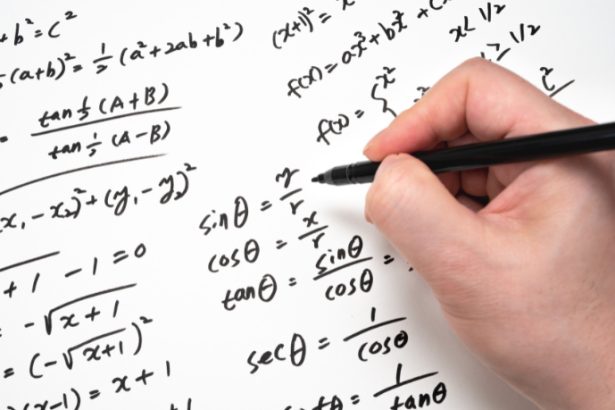 + b² = c²
(a+b)² = 1/2 (a² + 2ab + b²)
tan ½ (A+B)
tan ½ (A-B)
x₁ - x₂)² + (y₁ - y₂)²
+ 1 - 1 = 0
= -√x+1
= (-√x+1)²
(x-1) = x + 1
(x+1)² =
f(x) = ax³ + bx² +
f(x) = { x²
x < 1/2
≥ 1/2
sinθ = y/r
cosθ = x/r
tanθ = sinθ/cosθ =
secθ = 1/cosθ
tθ = 1/tanθ